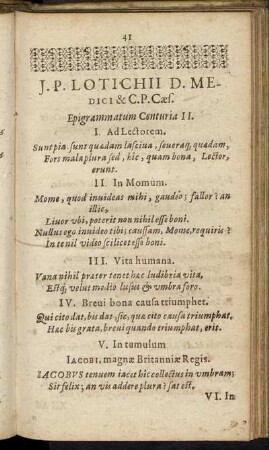 41
J. P. LOTICHII D. ME-
DICI & C. P. Cæs.
Epigrammatum Centuria II.
I. Ad Lectorem.
Sunt pia, sunt quadam lasciva, severaq; quadam,
Fors mala plura sed, hic, quam bona, Lector,
erunt.
II. In Momum.
Mome, quod invideas mihi, gaudeo; fallor? an
illic,
Livor vbi, poterit non nihil esse boni.
Nullus ego invideo tibi; caussam, Mome, requiris?
In te nil video scilicet esse boni.
III. Vita humana.
Vana nihil præter tenet hæc ludibria vita,
Estq; velut medio lusus & umbra foro.
IV. Brevi bona causa triumphet.
Qui cito dat, bis dat; sic, quæ cito causa triumphat,
Hæc bis grata, brevi quando triumphat, erit.
V. In tumulum
IACOBI, magnæ Britanniæ Regis.
IACOBVS tenuem jacet hic collectus in vmbram;
Sit felix; an vis addere plura? sat est.
VI. In